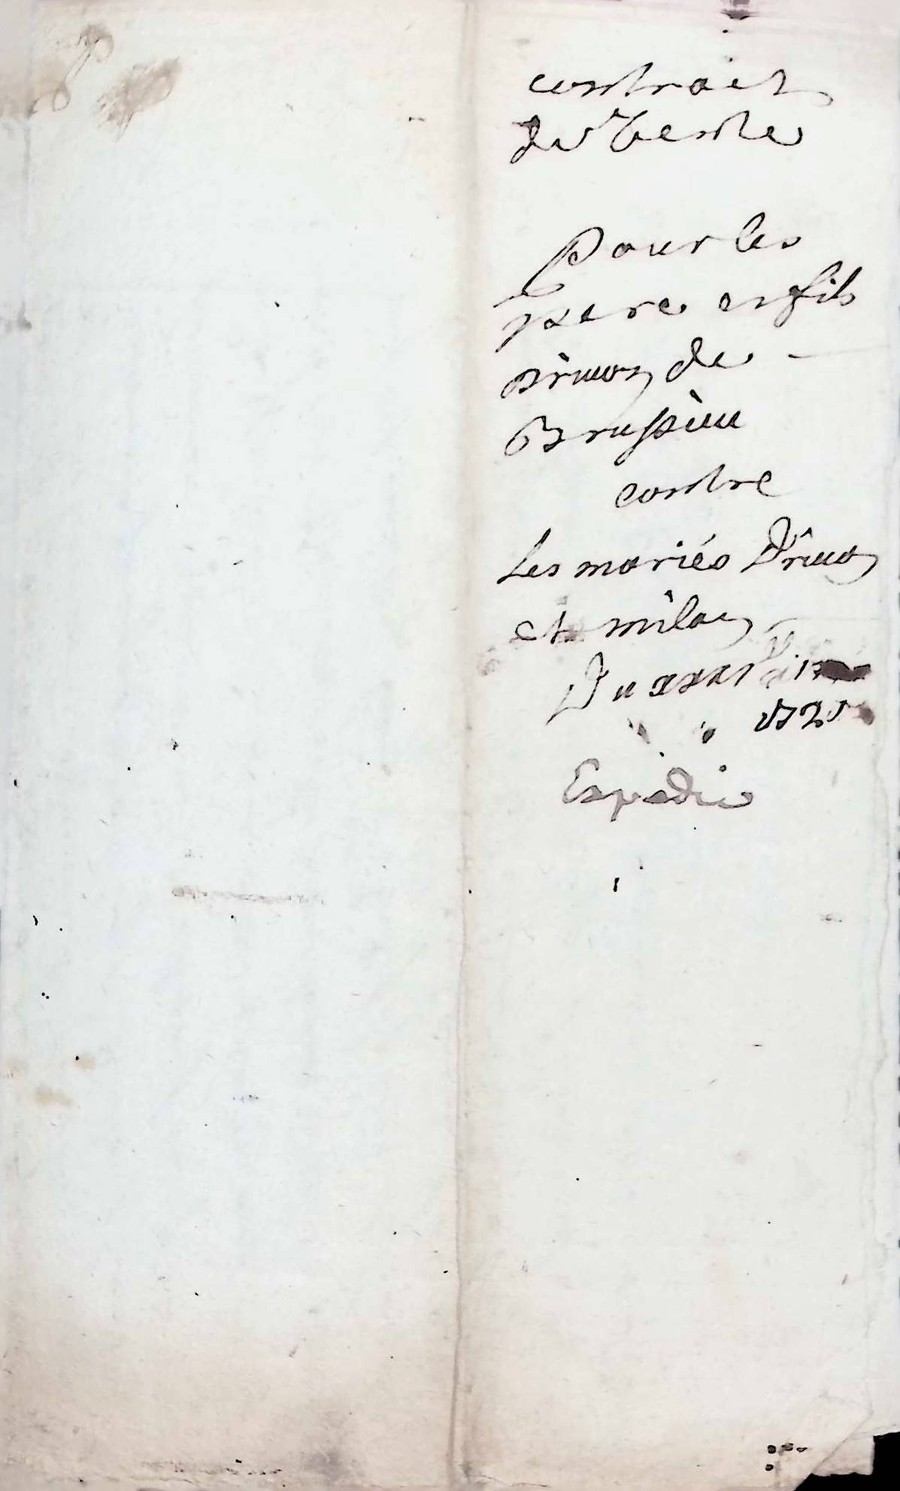 contract
de Vente
Pour les
pere et fils
de
Brussieu
contre
Les mariés
et milan
Du
1725
Expedié